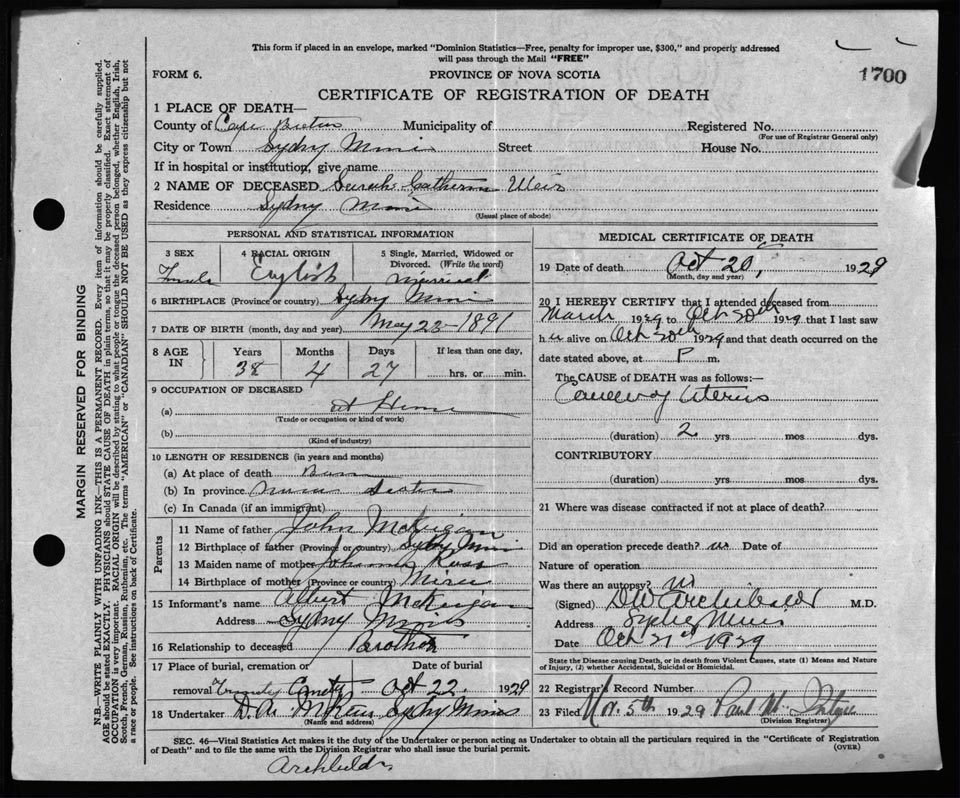 This form if placed in an envelope, marked "Dominion Statistics—Free, penalty for improper use, $300," and properly addressed
will pass through the Mail "FREE"
FORM 6. PROVINCE OF NOVA SCOTIA
1700
CERTIFICATE OF REGISTRATION OF DEATH
1 PLACE OF DEATH—
County of Cape Breton Municipality of Registered No.
(For use of Registrar General only)
City or Town Sydney Mines Street House No.
If in hospital or institution, give name
2 NAME OF DECEASED Sarah Catherine Weir
Residence Sydney Mines
(Usual place of abode)
PERSONAL AND STATISTICAL INFORMATION
3 SEX 4 RACIAL ORIGIN 5 Single, Married, Widowed or
Divorced. (Write the word)
Female English Married
6 BIRTHPLACE (Province or country) Sydney Mines
7 DATE OF BIRTH (month, day and year) May 23—1891
8 AGE IN Years Months Days If less than one day,
38 4 27 hrs. or min.
9 OCCUPATION OF DECEASED
(a) at Home
(Trade or occupation or kind of work)
(b)
(Kind of industry)
10 LENGTH OF RESIDENCE (in years and months)
(a) At place of death
(b) In province
(c) In Canada (if an immigrant)
Parents
11 Name of father John McKeigan
12 Birthplace of father (Province or country) Sydney Mines
13 Maiden name of mother Johanna Ross
14 Birthplace of mother (Province or country)
15 Informant's name Albert McKeigan
Address Sydney Mines
16 Relationship to deceased Brother
17 Place of burial, cremation or Date of burial
removal Trinity Cemetery Oct 22, 1929
18 Undertaker Sydney Mines
(Name and address)
MEDICAL CERTIFICATE OF DEATH
19 Date of death Oct 20, 1929
(Month, day and year)
20 I HEREBY CERTIFY that I attended deceased from
March 1929 to Oct 20th 1929 that I last saw
h er alive on Oct 20th 1929 and that death occurred on the
date stated above, at P m.
The CAUSE of DEATH was as follows:—
Cancer of Uterus
(duration) 2 yrs mos dys.
CONTRIBUTORY
(duration) yrs mos dys.
21 Where was disease contracted if not at place of death?
Did an operation precede death? no Date of
Nature of operation
Was there an autopsy? no
(Signed) DW Archibald M.D.
Address Sydney Mines
Date Oct 21st 1929
State the Disease causing Death, or in death from Violent Causes, state (1) Means and Nature
of Injury, (2) whether Accidental, Suicidal or Homicidal.
22 Registrar's Record Number
23 Filed Nov. 5th 1929 Paul
(Division Registrar)
SEC. 46—Vital Statistics Act makes it the duty of the Undertaker or person acting as Undertaker to obtain all the particulars required in the "Certificate of Registration of Death"
and to file the same with the Division Registrar who shall issue the burial permit. (OVER)
MARGIN RESERVED FOR BINDING
N.B.—WRITE PLAINLY WITH UNFADING INK—THIS IS A PERMANENT RECORD. Every item of information should be carefully supplied.
AGE should be stated EXACTLY. PHYSICIANS should STATE CAUSE OF DEATH in plain terms, so that it may be properly classified. Exact statement of
OCCUPATION is very important. RACIAL ORIGIN will be described by stating to what people or tongue the deceased person belonged, whether English, Irish,
Scotch, French, German, Russian, Ruthenian, etc. The terms "AMERICAN" or "CANADIAN" SHOULD NOT BE USED as they express citizenship but not
a race or people. See instructions on back of Certificate.